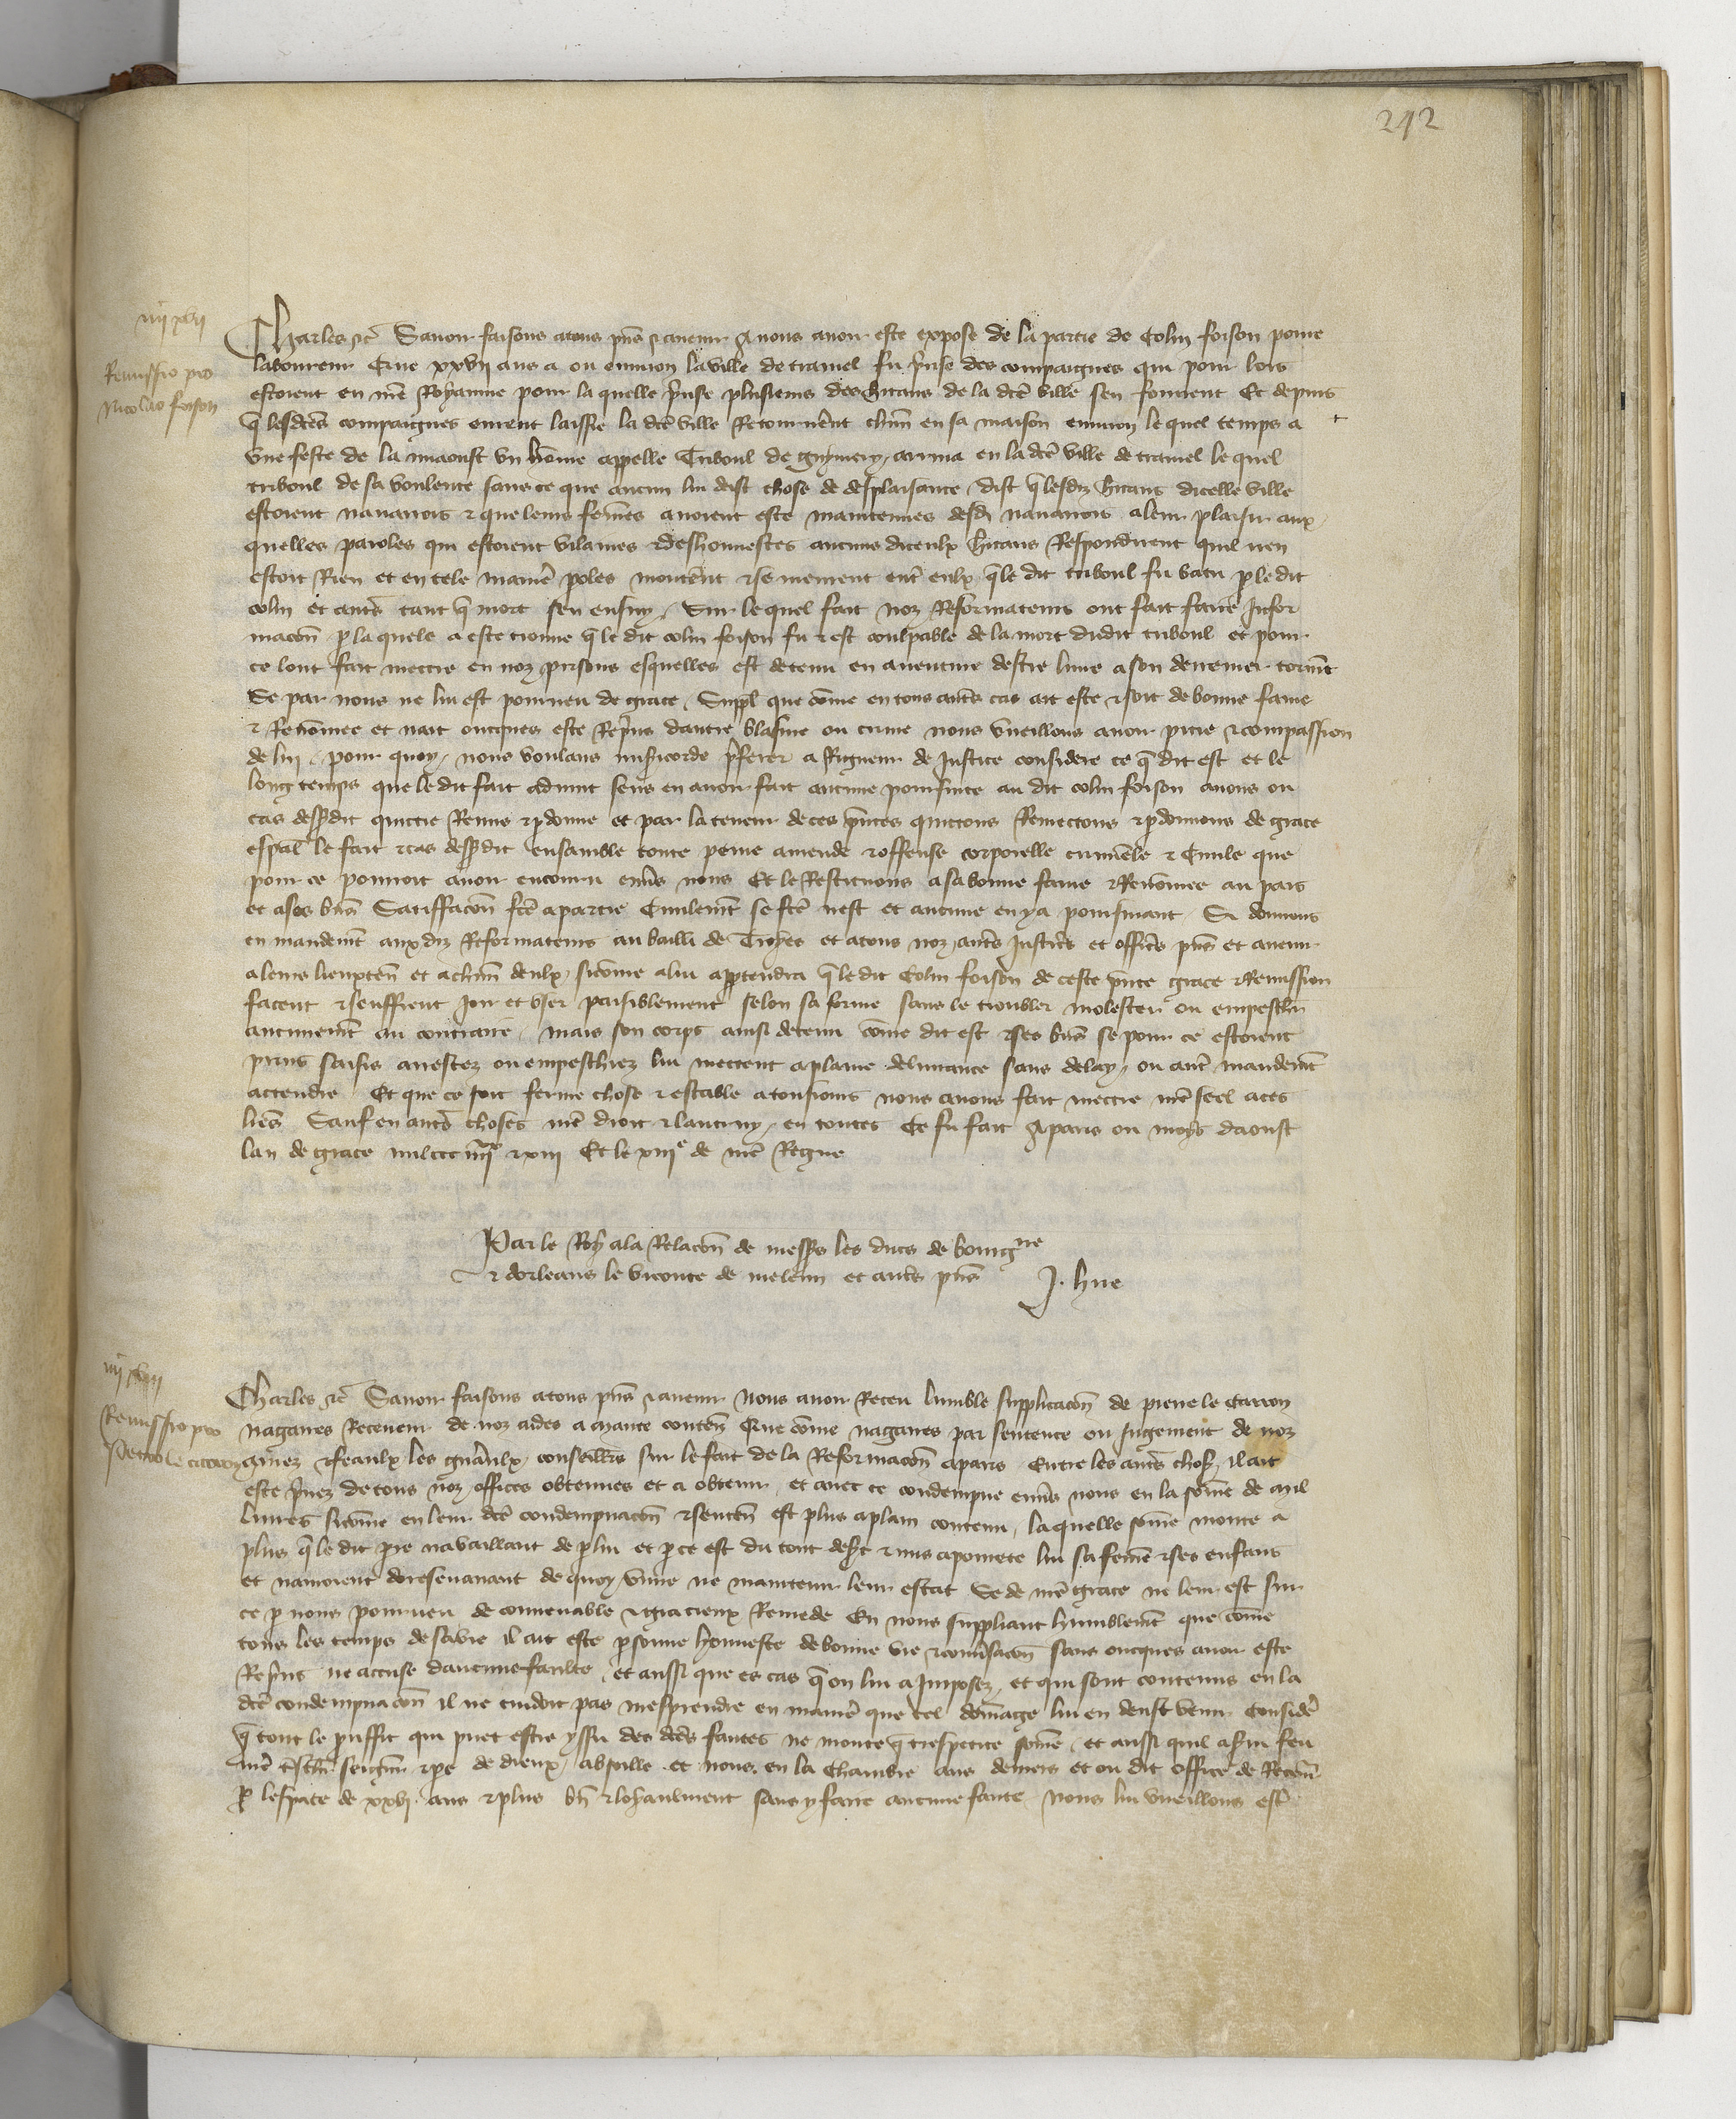 242
iiij xvij
Remissio pro
Nicolao foison
Charles &c Savoir faisons a tous pns & avenir A nous avoir este expose de la partie de Colin foison povre
laboureur Que xxvij ans a ou environ la ville de tramel fu prinse des compaignes qui pour lors
estoient en nre Royaume pour la quelle prinse plusieurs des hitans de la dce ville sen fouirent Et depuis
q lesdces compaignes eurent laissie la dce ville Retournerent chun en sa maison environ le quel temps a
une feste de la miaoust un homme appelle Triboul de gnymery, arriva en la dce ville de tramel le quel
triboul de sa voulente sans ce que aucun lui deist chose de desplaisance, dist q lesdiz hitans dicelle ville
estoient navarrois & que leurs femes avoient este maintenues desd navarrois a leur plaisir aux
quelles paroles qui estoient vilaines & deshonnestes aucuns diceulx hitans Respondirent quil nen
estoit Rien et en tele maniere poles monterent & se meurent entre eulx q le dit triboul fu batu p le dit
colin et autres tant q mort sen ensuy, Sur le quel fait noz Reformateurs ont fait faire Infor
macon p la quele a este trouve q le dit colin foison fu & est coulpable de la mort dudit triboul et pour
ce lont fait mectre en noz prisons esquelles est detenu en aventure destre livre a son derrenier torment
Se par nous ne lui est pourveu de grace, Suppl que come en tous autres cas ait este & soit de bonne fame
& Renommee et nait oncques este Reprins dautre blasme ou crime nous vueillons avoir pitie & compassion
de lui, pour quoy, nous voulans misericorde preferer a Rigueur de Justice considere ce q dit est et le
long temps que le dit fait advint sens en avoir fait aucune poursuite au dit colin foison avons ou
cas dessusdit quictie Remis & pdonne et par la teneur de ces pntes quictons Remectons & pdonnons de grace
especial le fait & cas dessusdit ensamble toute peine amende & offense corporelle criminele & Civile que
pour ce pourroit avoir encouru envers nous Et le Restituons a sa bonne fame & Renommee au pais
et a ses biens Satisfacon fce a partie Civilemt se fce nest et aucune en y a poursuivant Si donnons
en mandemt aux diz Reformateurs au bailli de Troyes et a tous noz autres Justiciers et officiers pns et avenir
a leurs lieuxten et a chun deulx, sicome a lui apptendra q le dit Colin foison de ceste pnte grace & Remission
facent & seuffrent Joir et user paisiblement selon sa forme sans le troubler molester ou empeschier
aucunemt au contraire, mais son corps ainsi detenu come dit est & ses biens se pour ce estoient
prins saisis arrestez ou empeschiez lui mettent a plaine delivrance sans delay, ou autre mandemt
attendre Et que ce soit ferme chose & estable a tousjours nous avons fait mectre nre seel a ces
lres Sauf en autres choses nre droit & lautruy, en toutes Ce fu fait A paris ou moys daoust
lan de grace mil ccc iiijxx & xiij Et le xiije de nre Regne
Par le Roy a la Relacon de messrs les ducs de bourgne
& dorleans le viconte de meleun et autres pns J. hue
iiij xviij
Remissio pro
Petro Le carron
Charles &c Savoir faisons a tous pns & avenir Nous avoir Receu lumble supplicacon de pierre le Carron
nagaires Receveur de noz aides a mante conten Que come nagaires par sentence ou Jugement de noz
amez & feaulx les gnaulx conseillers sur le fait de la Reformacon a paris Entre les autres choses, il ait
este privez de tous noz offices obtenues et a obtenir, et avec ce condempne envers nous en la some de mil
livres sicome en leur dce condempnacon & senten est plus a plain contenu, la quelle some monte a
plus q le dit pre navaillant de plui et p ce est du tout desert & mis a povrete lui sa feme & ses enfans
et nauroient doresenavant de quoy vivre ne maintenir leur estat Se de nre grace ne leur est sur
ce p nous pourveu de convenable & gracieux Remede En nous suppliant humblemt que come
tous les temps de sa vie il ait este psonne honneste de bonne vie & conversacon sans oncques avoir este
Reprins ne accuse daucune faulte, et aussi que es cas q on lui a Imposez, et qui sont contenus en la
dce condempnacon il ne cuidoit pas mesprendre en maniere que tel dommage lui en deust venir Considere
q tout le prouffit qui puet estre yssu des dces fautes ne monte q tres petite some, et aussi quil a servi feu
nre tschier seigneur & pe de dieux absoille et nous, en la Chambre aux deniers et ou dit office de Receveur
p lespace de xxvj ans & plus bien & loyaulment sans y faire aucune faute Nous lui vueillons estre